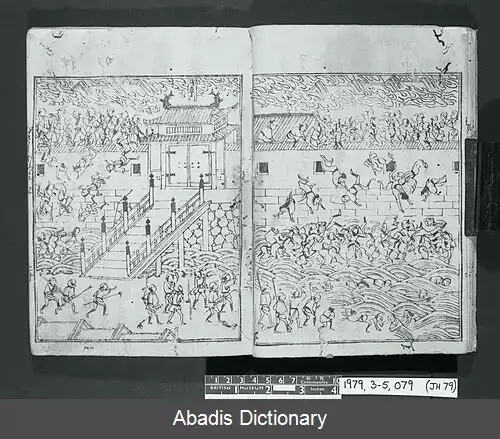 1 2 3 4 5 6 7 8 Centimetres
BRITISH MUSEUM 1 2 3 4 Inches
1979, 3-5, 079 (JH 79)
Abadis Dictionary